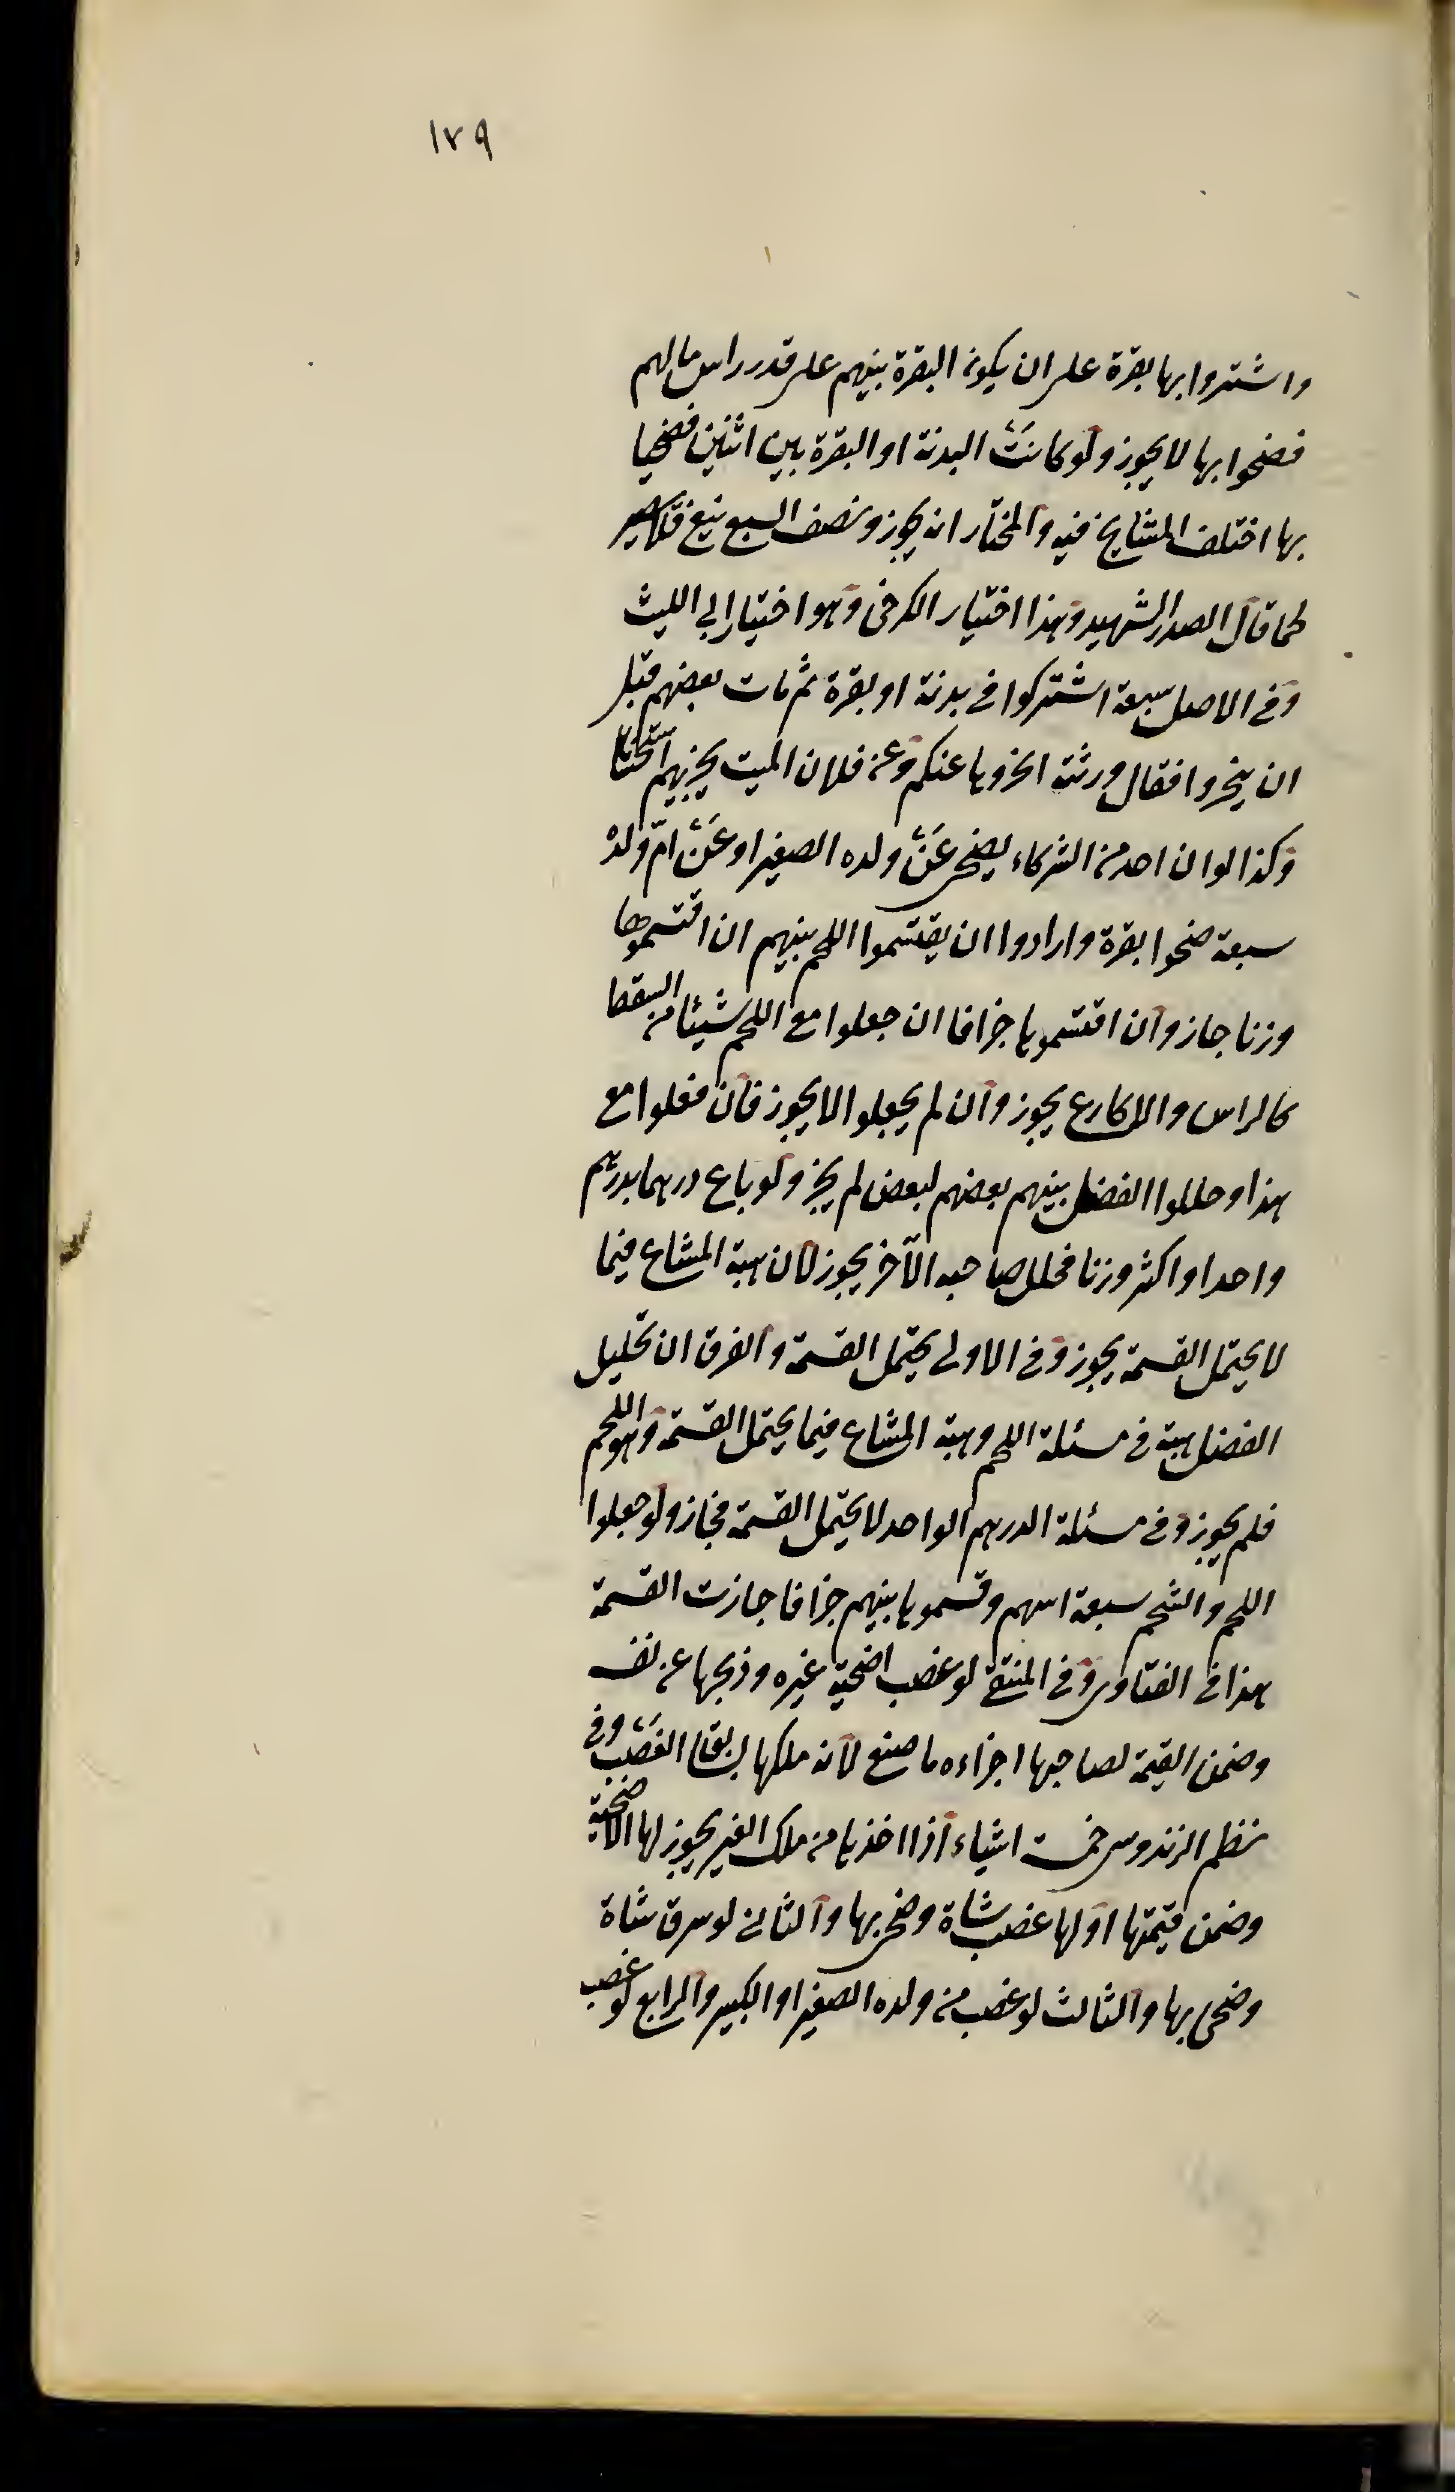 ١٢٩
واشتروا بها بقرة على ان يكون البقرة بينهم على قدر راس مالهم
فضحوا بها لا يجوز ولو كانت البدنة او البقرة بين اثنين فضحيا
بها اختلف المشايخ فيه والمختار انه يجوز ونصف السبع تبع فلا يصير
لحما قال الصدر الشهيد وهذا اختيار الكرخى وهو اختيار ابى الليث
وفى الاصل سبعة اشتركوا فى بدنة او بقرة ثم مات بعضهم قبل
ان ينحروا فقال ورثته انحروها عنكم وعن فلان الميت يجزيهم استحسانا
وكذا لو ان احد من الشركاء يضحى عَنْ ولده الصغير او عَنْ امّ ولدْ
سبعة ضحوا بقرة وارادوا ان يقتسموا اللحم بينهم ان اقتسموها
وزنا جاز وان اقتسموها جزافا ان جعلوا مع اللحم شيئا من السقط
كالراس والاكارع يجوز وان لم يجعلوا لا يجوز فان فعلوا مع
هذا وحللوا الفضل بينهم بعضهم لبعض لم يجز ولو باع درهما بدرهم
واحدا واكثر وزنا فحلل صاحبه الآخر يجوز لان هبة المشاع فيما
لا يحتمل القسمة يجوز وفى الاولى يحتمل القسمة والفرق ان تحليل
الفضل هبة فى مسئلة اللحم وهبة المشاع فيما يحتمل القسمة وهو اللحم
فلم يجوز وفى مسئلة الدرهم الواحد لا يحتمل القسمة فجاز ولو جعلوا
اللحم والشحم سبعة اسهم وقسموها بينهم جزافا جازت القسمة
هذا فى الفتاوى وفى المنتقى لو غصب اضحية غيره وذبحها عن نفسه
وضمن القيمة لصاحبها اجزاءه ما صنع لانه ملكها بسابق الغصَبْ وفى
نظم الزندوسى خمسة اشياء اذا اخذها من ملك الغير يجوز لها الاضحية
وضمن قيمتها اولها غصب شاة وضحى بها والثانى لو سرق شاة
وضحى بها والثالث لو غصب من ولده الصغير او الكبير والرابع لو غصب